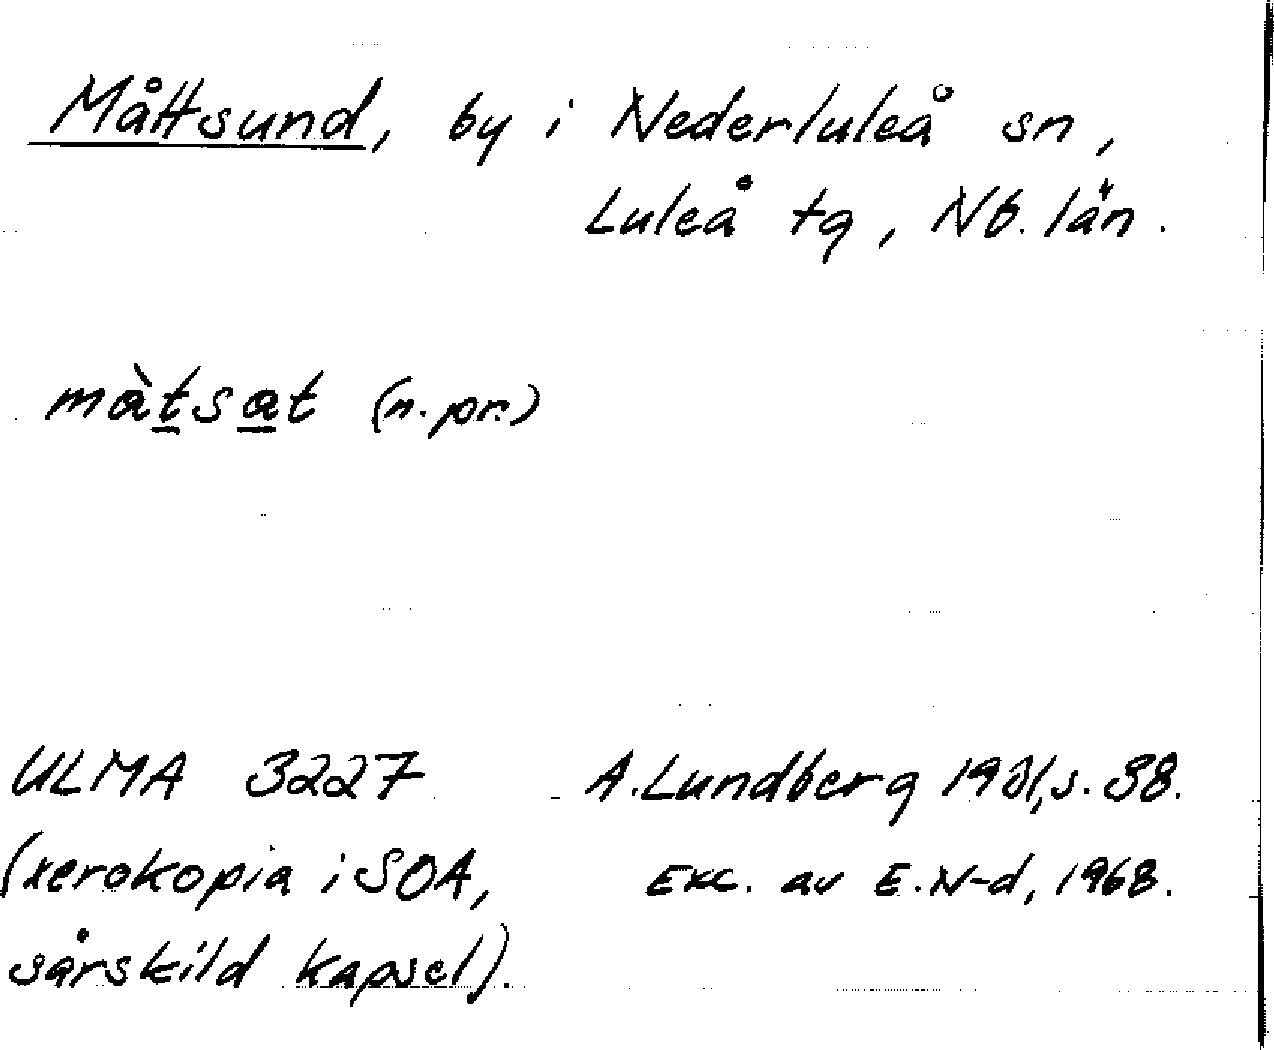 Måttsund, by i Nederluleå sn,
Luleå tg, Nb. län.
màtsat (n.pr.)
ULMA 3227 A.Lundberg s. 38.
(xerokopia i SOA, Exc. av E.N-d, 1968.
särskild kapsel).